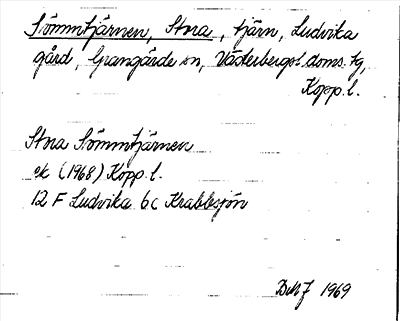 Sömmtjärnen, Stora, tjärn, Ludvika
gård, Grangärde sn, Västerbergsl. doms. tg,
Kopp. l.
Stora Sömmtjärnen
ek (1968) Kopp. l.
12 F Ludvika 6c Krabbsjön
1969